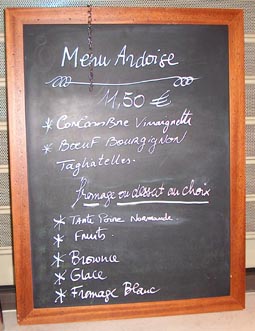 Menu Ardoise
11,50 €
* Concombre Vinaigrette
* Bœuf Bourgignon
Tagliatelles.
fromage ou dessert au choix
* Tarte Poire Normande.
* Fruits.
* Brownie
* Glace
* Fromage Blanc